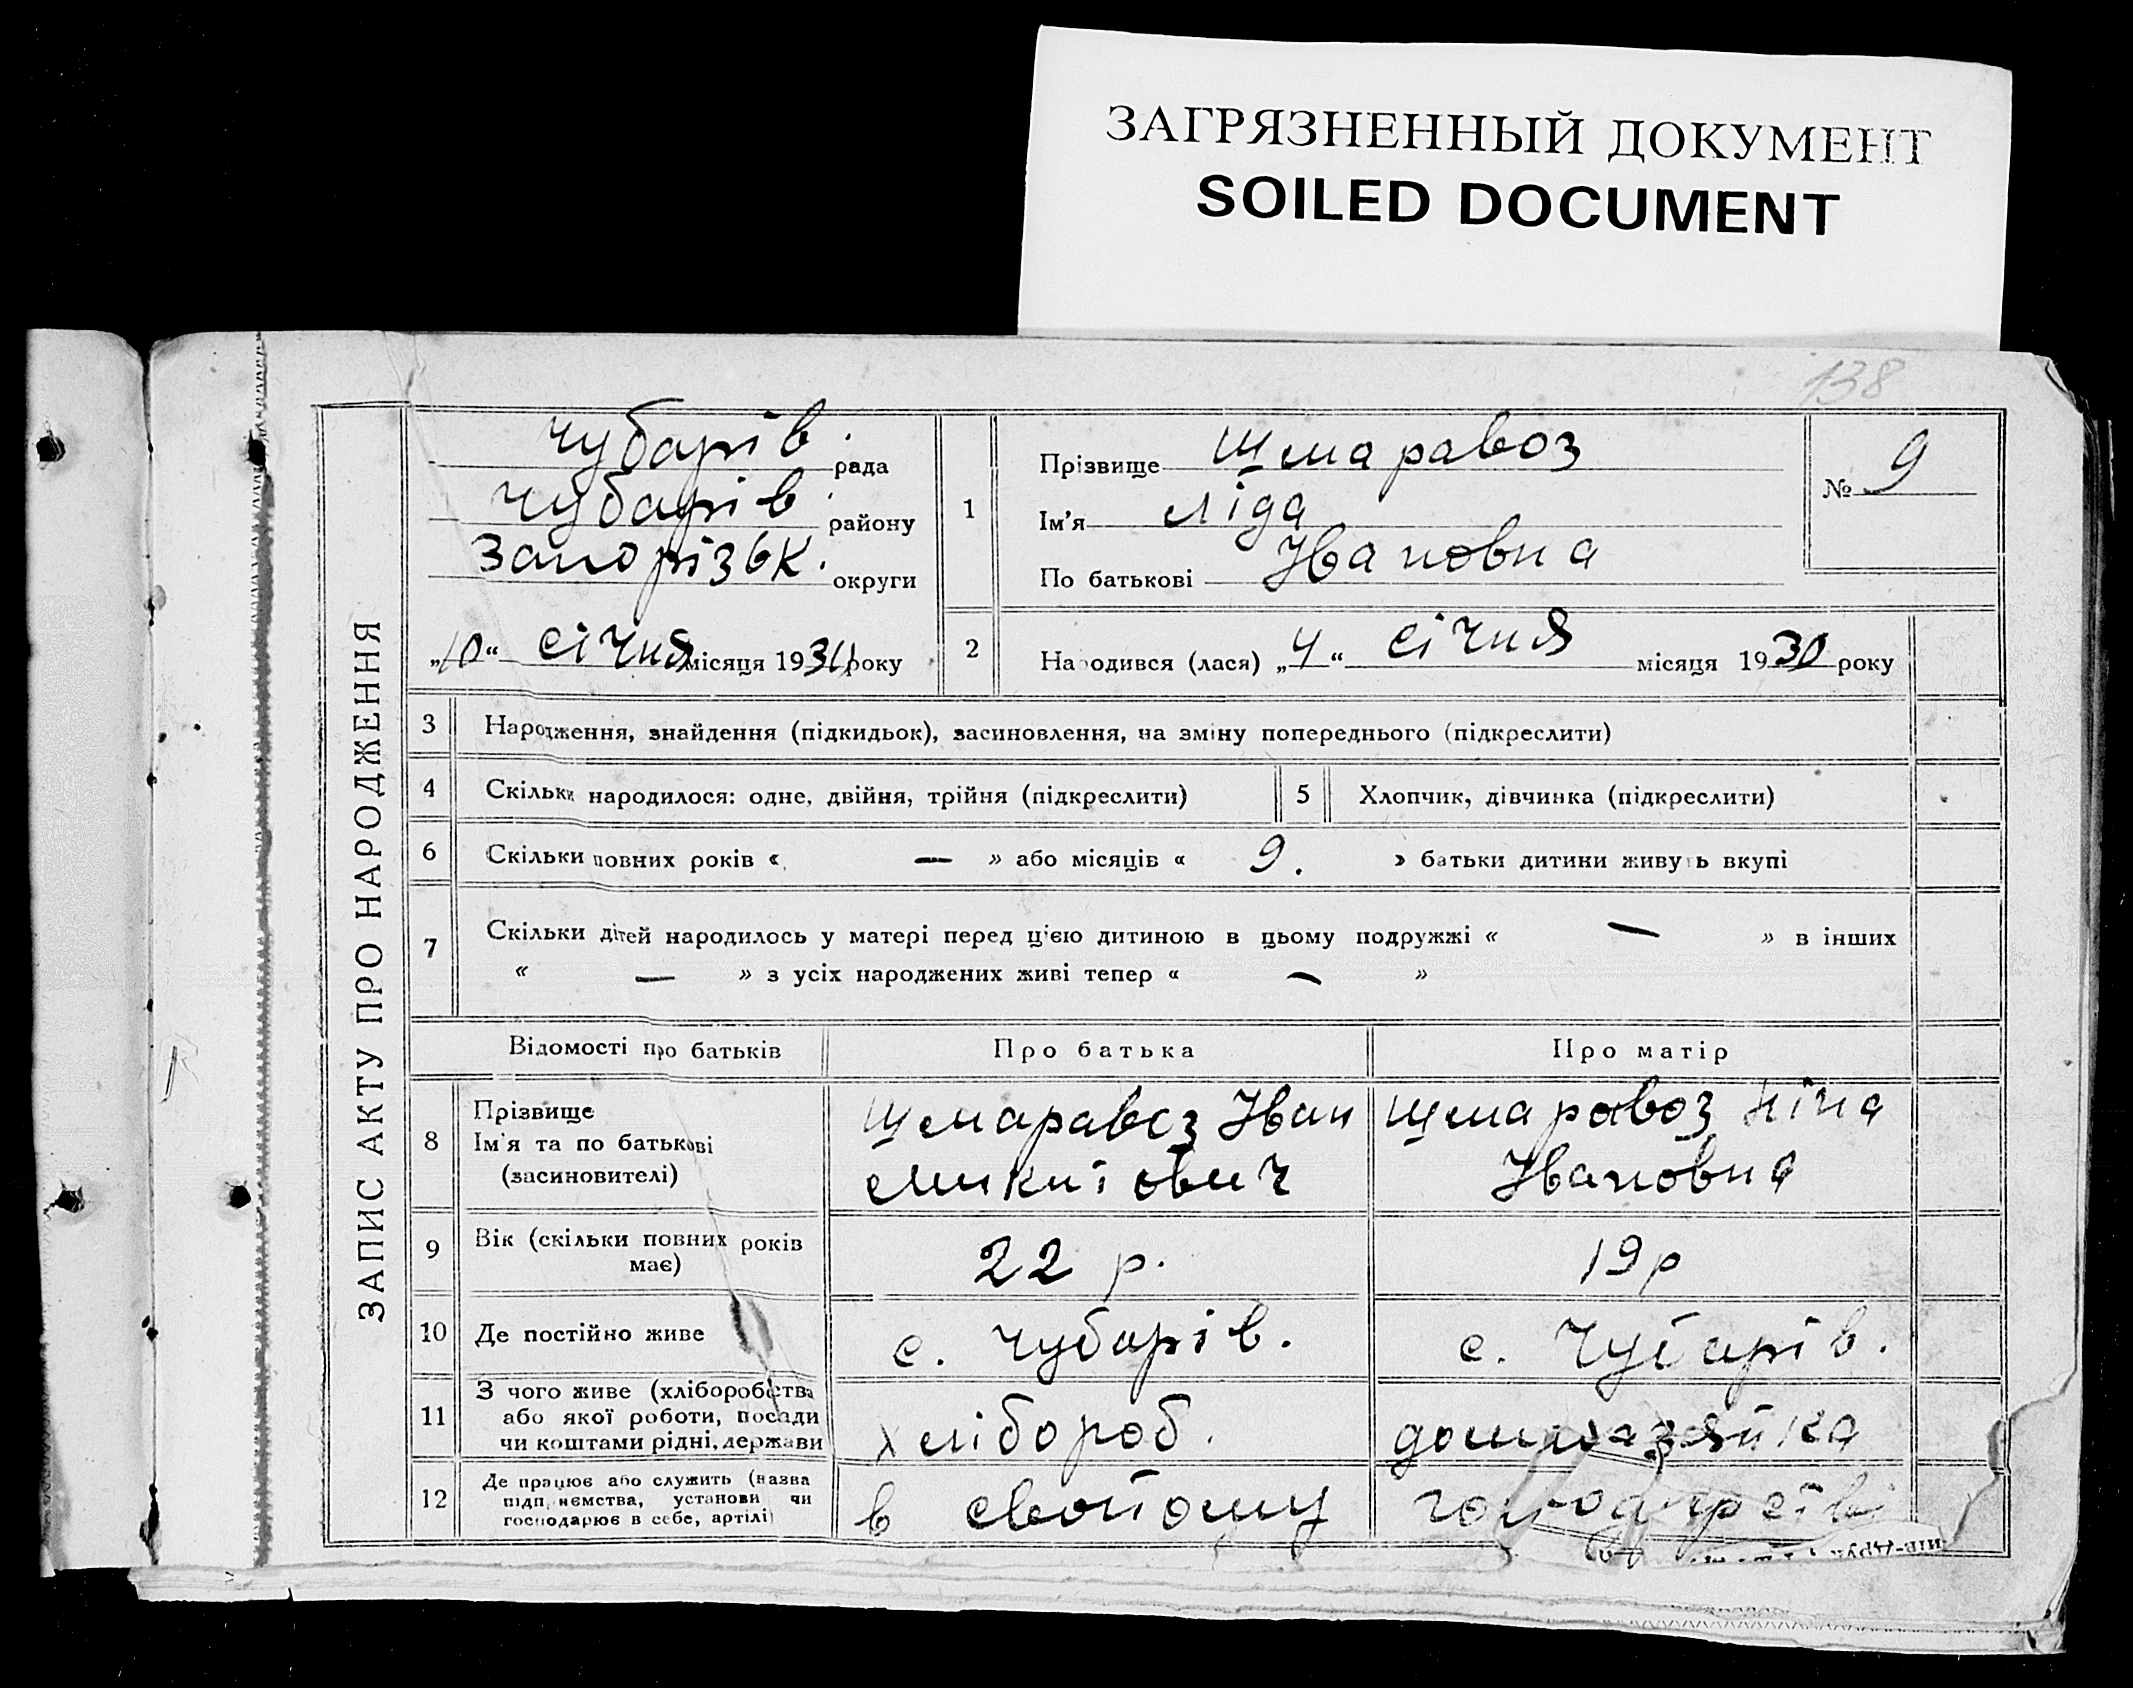 ЗАГРЯЗНЕННЫЙ ДОКУМЕНТ
SOILED DOCUMENT
138
ЗАПИС АКТУ ПРО НАРОДЖЕННЯ
Чубарів. рада
Чубарів. району
Запорізьк. округи
„10“ січня місяця 1930 року
1
Прізвище Щемаравоз
Ім’я Ліда
По батькові Івановна
№ 9
2 Народився (лася) „4“ січня місяця 1930 року
3 Народження, знайдення (підкидьок), засиновлення, на зміну попереднього (підкреслити)
4 Скільки народилося: одне, двійня, трійня (підкреслити) 5 Хлопчик, дівчинка (підкреслити)
6 Скільки повних років « — » або місяців « 9. » батьки дитини живуть вкупі
7 Скільки дітей народилось у матері перед цією дитиною в цьому подружжі « — » в інших
« — » з усіх народжених живі тепер « — »
Відомості про батьків Про батька Про матір
8 Прізвище
Ім’я та по батькові
(засиновителі)
Щемаравоз Іван
Щемаравоз Ніна
Івановна
9 Вік (скільки повних років
має)
22 р. 19р
10 Де постійно живе с. Чубарів. с. Чубарів.
11 З чого живе (хліборобства
або якої роботи, посади
чи коштами рідні, держави
хлібороб. домохазяйка
12 Де працює або служить (назва
підприємства, установи чи
господарює в себе, артілі)
в свойому господарстві